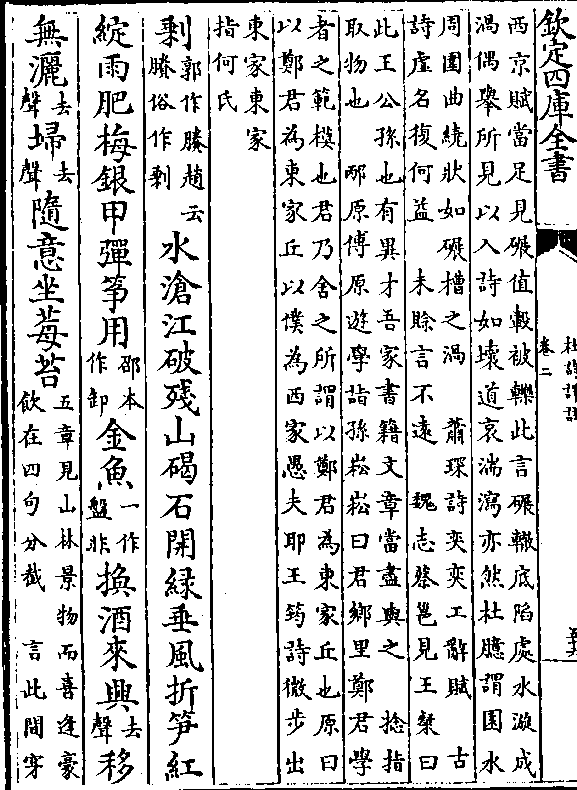 欽定四庫全書
杜詩詳註
卷二
西京賦當足見碾值轂被轢此言碾轍底陷處水漩成
渦偶舉所見以入詩如壞道哀湍瀉亦然杜臆謂園水
周圍曲繞狀如碾槽之渦　蕭琛詩奕奕工辭賦　古
詩虛名復何益　未賒言不遠　魏志蔡邕見王粲曰
此王公孫也有異才吾家書籍文章當盡與之　捻指
取物也　邴原傳原遊學詣孫崧崧曰君鄉里鄭君學
者之範模也君乃舍之所謂以鄭君為東家丘也原曰
以鄭君為東家丘以僕為西家愚夫耶王筠詩微步出
東家東家
指何氏
剩郭作賸趙云賸俗作剩水滄江破殘山碣石開緑垂風折笋紅
綻雨肥梅銀甲彈箏用邵本作卸金魚一作盤非換酒來興去聲移
無灑去聲埽去聲隨意坐莓苔五章見山林景物而喜逢豪飲在四句分截　言此間穿